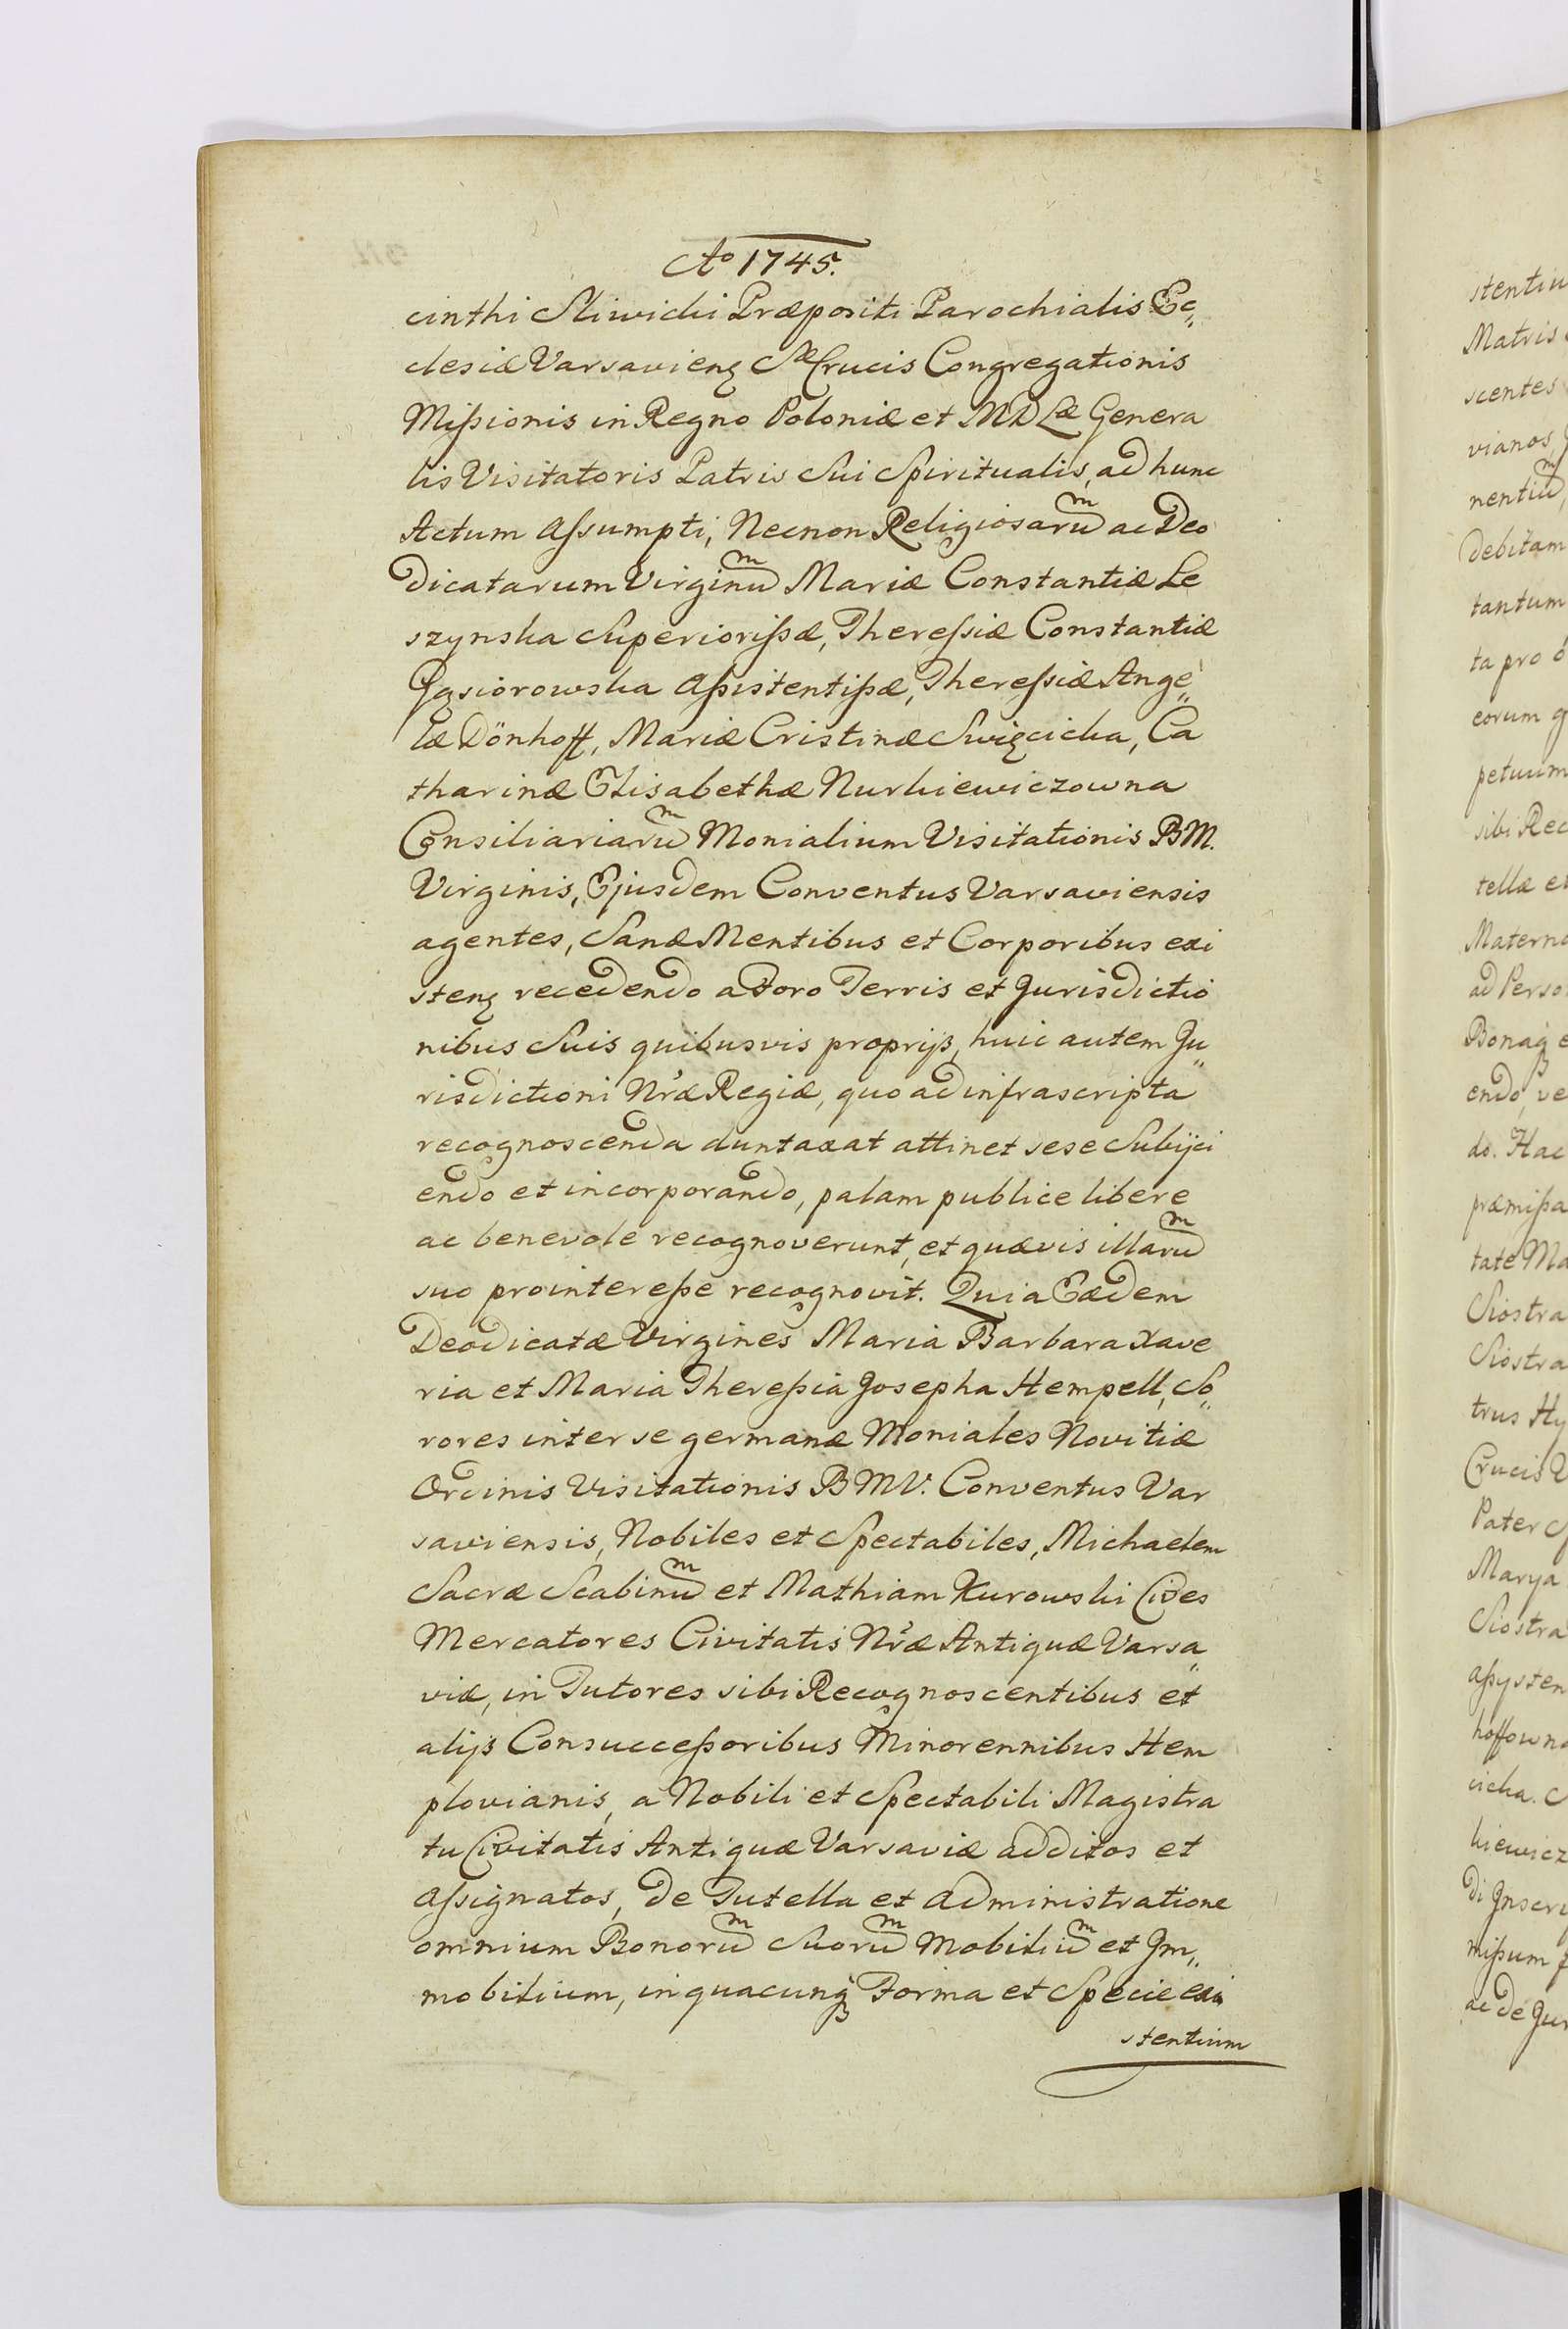 Aº 1745.
cinthi Sliwicki Præpositi Parochialis Ec„
clesiæ Varsavieng Sæ Crucis Congregationis
Missionis in Regno Poloniæ et MD Læ Genera
lis Visitatoris Patris Sui Spiritualis, ad hunc
Actum Assumpti, Necnon Religiosarum ac Deo
dicatarum Virginum Mariæ Constantiæ Le
szynska Superiorissæ, Theressiæ Constantiæ
Gąsiorowska Assistentissæ, Theressiæ Ange„
læ Dönhoff, Mariæ Cristinæ Swięcicka, Ca
tharinæ Elisabethæ Nurkiewiczowna
Consiliariarum Monialium Visitationis BM.
Virginis, Ejusdem Conventus Varsaviensis
agentes, Sanæ Mentibus et Corporibus exi
steng recedendo a Foro Terris et Jurisdictio
nibus Suis quibusvis proprijs, huic autem Ju„
risdictioni Nræ Regiæ, quo ad infrascripta
recognoscenda duntaxat attinet sese Subijci
endo et incorporando, palam publice libere
ac benevole recognoverunt, et quævis illarum
suo prointeresse recognovit. Quia Eædem
Deodicatæ Virgines Maria Barbara Xave
ria et Maria Theressia Josepha Hempell, So„
rores inter se germanæ Moniales Novitiæ
Ordinis Visitationis BMV. Conventus Var
saviensis, Nobiles et Spectabiles, Michaelem
Sacræ Scabinum et Mathiam Kurowski Cives
Mercatores Civitatis Nræ Antiquæ Varsa„
viæ, in Tutores sibi Recognoscentibus et
alijs Consuccessoribus Minorennibus Hem
plovianis, a Nobili et Spectabili Magistra
tu Civitatis Antiquæ Varsaviæ additos et
assignatos, de Tutella et administratione
omnium Bonorum Suorum Mobilium et Im„
mobilium, in quacunq Forma et Specie exi
stentium
stentiu
Matris
scentes
vianos
nentium
debitam
tantum
ta pro
eorum
petuum
sibi Rec
tellæ et
Materna
ad Perso
endo, ve
do. Hac
præmissa
tate Ma
Siostra
Siostra
trus Hy
Crucis V
Pater S
Marya
Siostra
Assysten
hoffowna
cicka. S
kiewicz
di Inscri
missum
ac de Jur